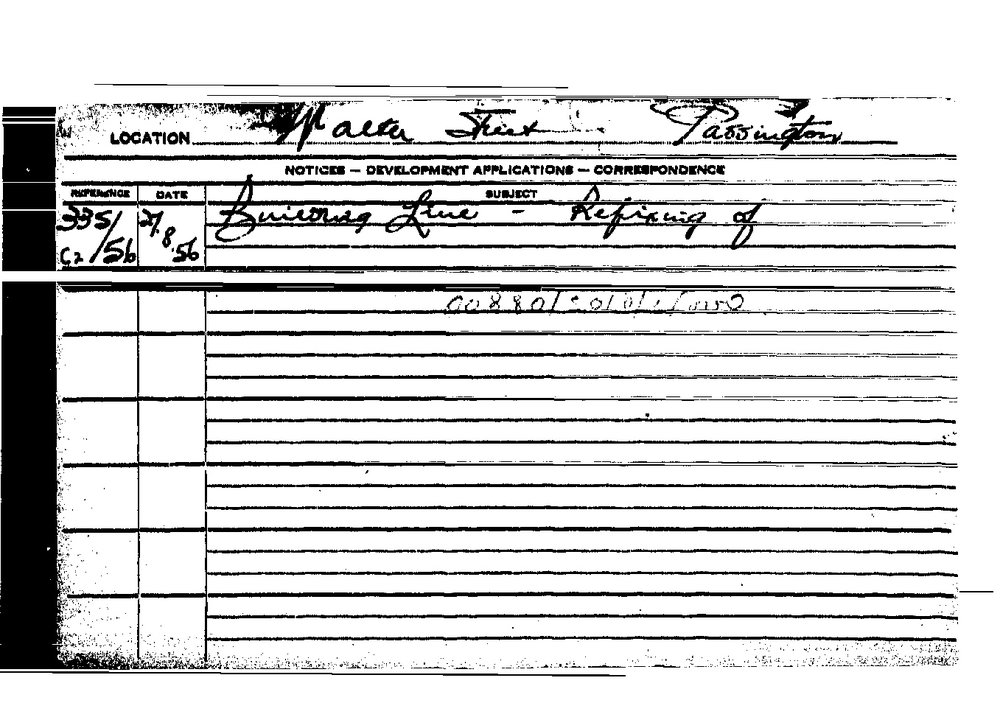 LOCATION Walter Street Paddington
NOTICES — DEVELOPMENT APPLICATIONS — CORRESPONDENCE
REFERENCE DATE SUBJECT
335/56 27.8.56 Building Line - Refixing of
C2